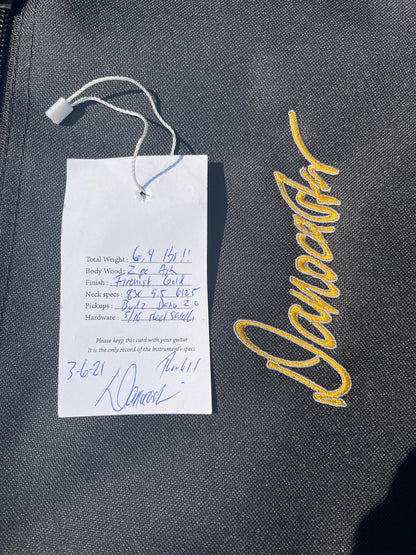 Total Weight: 6.4 lbs!!
Body Wood: 2 pc Ash
Finish: Firemist Gold
Neck specs: 83c 9.5 6125
Pickups: Dead 2.0
Hardware: 5/16 steel saddle
Please keep this card with your guitar
It is the only record of the instrument's specs
3-6-21
Danocaster
Danocaster